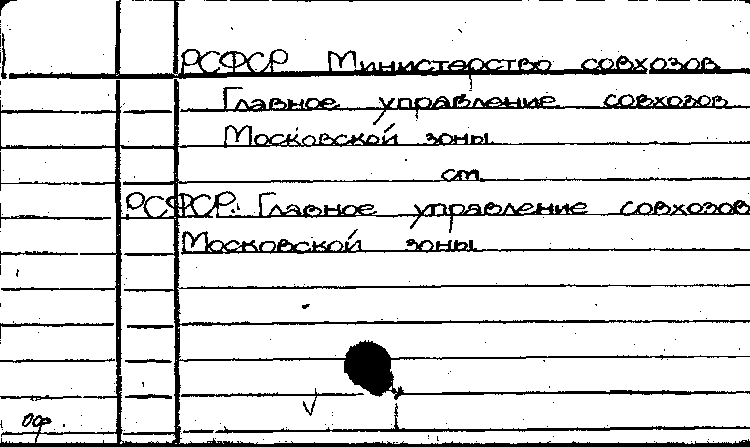 РСФСР Министерство совхозов
Главное управление совхозов
Московской зоны
см.
РСФСР. Главное управление совхозов
Московской зоны